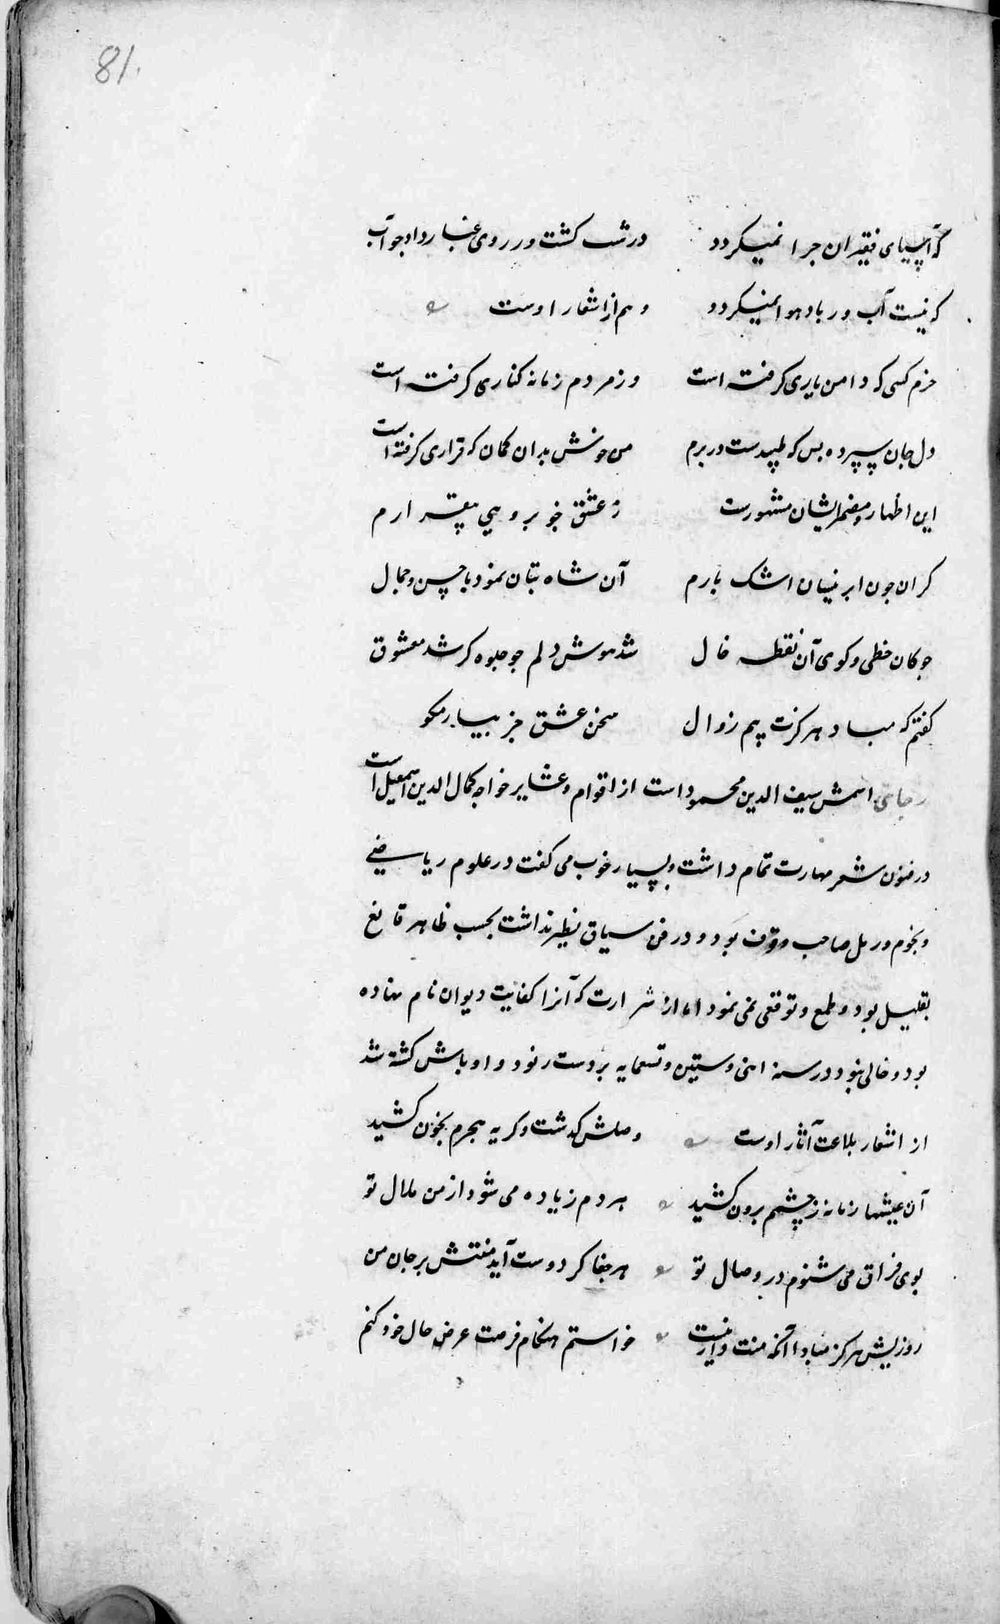 81.
که آسیای فقیران چرا نمیکردد درشب کشت و در روی غبار داد جواب
که نیست آب و رباد هوا نمیکردد و هم از اشعار اوست
خرم کسی که دامن یاری کرفته است وز مردم زمانه کناری کرفته است
دل جان سپرده بس که طپیدست در برم من خوش بدان کمان که قراری کرفته است
این اظهار و مضمر ایشان مشهورست ز عشق خوبرویی بیقرارم
کران چون ابر نیسان اشک بارم آن شاه بتان نمود با حسن و جمال
چوکان خطی و کوی آن نقطه خال شد هوش دلم چو جلوه کر شد معشوق
کفتم که مباد هرکزت بیم زوال سخن عشق جز بیا رمکو
رجائی اسمش سیف الدین محمود است از اقوام و عشایر خواجه کمال الدین اسمعیل است
در فنون شعر مهارت تمام داشت و بسیار خوب می کفت در علوم ریاضی
و نجوم و رمل صاحب وقوف بود و در فن سیاق نظیر نداشت بحسب ظاهر قانع
بقلیل بود و طمع و توقعی نمی نمود اما از شرارت که آنرا کفایت دیوان نام نهاده
بود و خالی نبود در سنه اثنی و ستین و تسعمایه بر دست رنود و اوباش کشته شد
از اشعار بلاغت آثار اوست وصلش کذشت و کریه هجرم بخون کشید
آن عیشها زمانه ز چشمم برون کشید هر دم زیاده می شود از من ملال تو
بوی فراق می شنوم در وصال تو هر جفا کز دوست آید منتش بر جان من
روزیش هرکز مبادا آنکه منت دار نیست خواستم هنکام فرصت عرض حال خود کنم